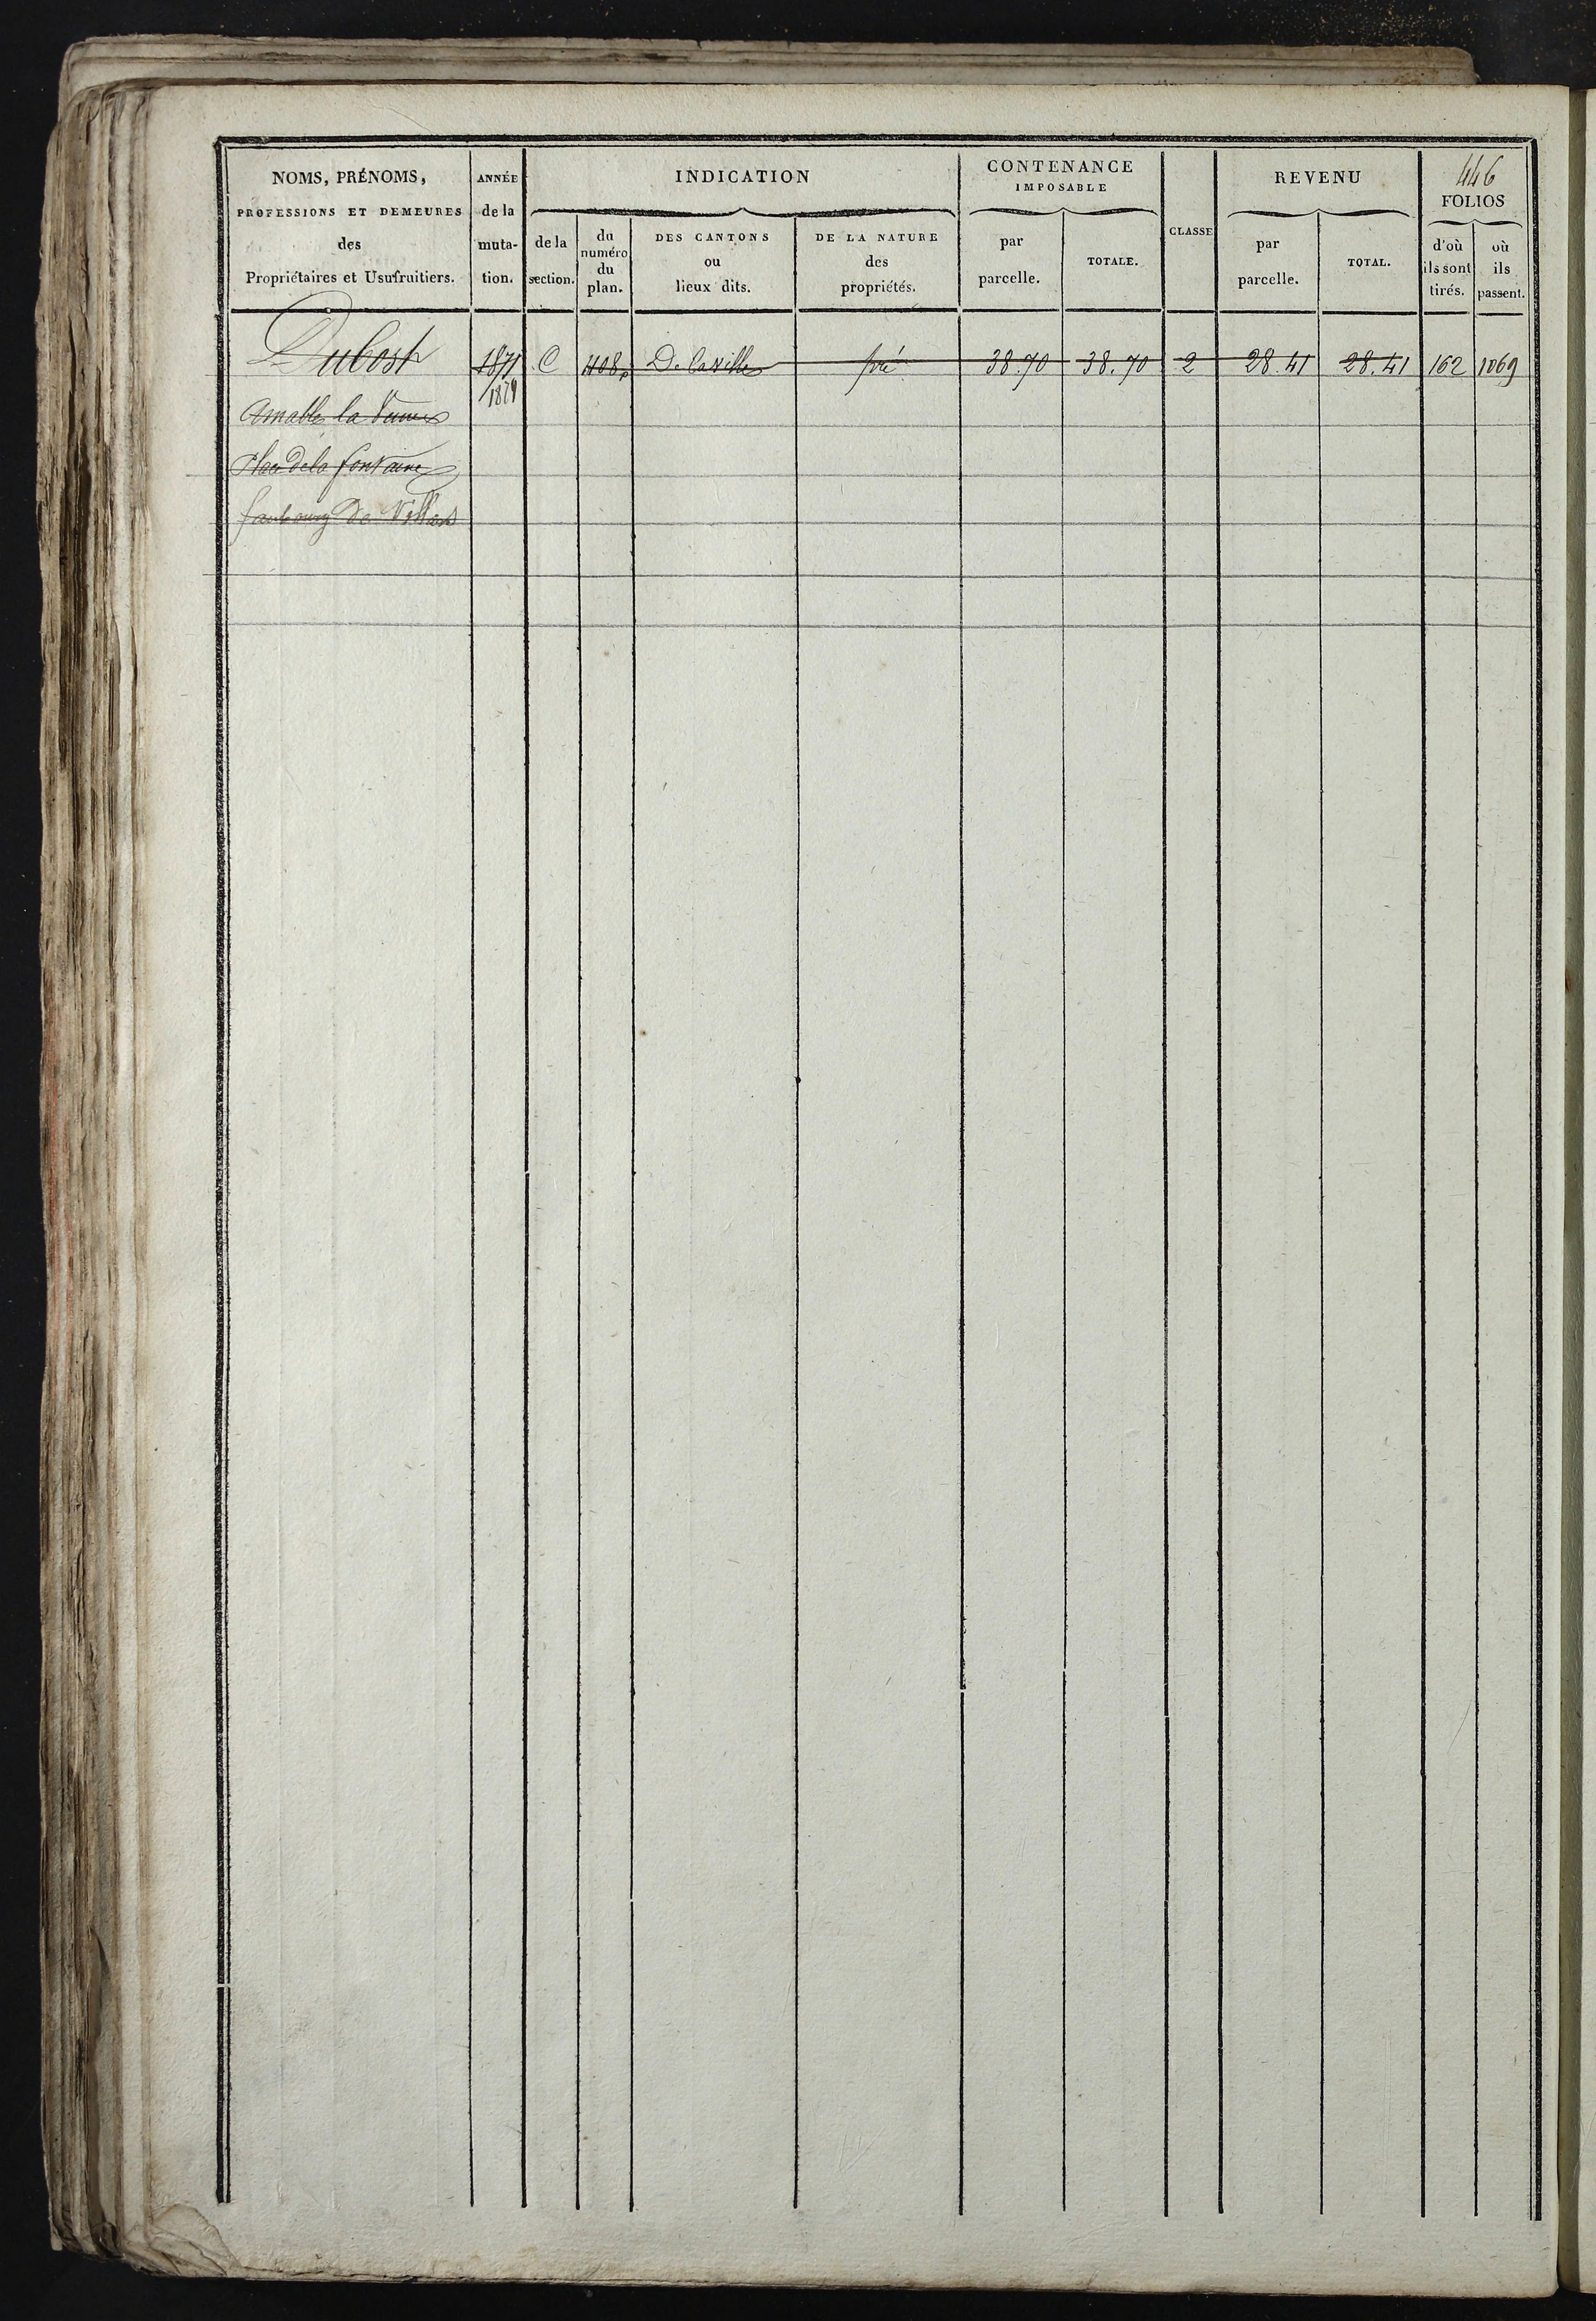 446
NOMS, PRÉNOMS,
PROFESSIONS ET DEMEURES
des
Propriétaires et Usufruitiers.
ANNÉE
de la
muta-
tion.
INDICATION
de la
section.
du
numéro
du
plan.
DES CANTONS
ou
lieux dits.
DE LA NATURE
des
propriétés.
CONTENANCE
IMPOSABLE
par
parcelle.
TOTALE.
CLASSE
REVENU
par
parcelle.
TOTAL.
FOLIOS
d'où
ils sont
tirés.
où
ils
passent.
Dubost 1871 C 408p De la Ville pré 38.70 38.70 2 28.41 28.41 162 1069
1879
Amable la Veuve
Place de la fontaine
faubourg de Villars